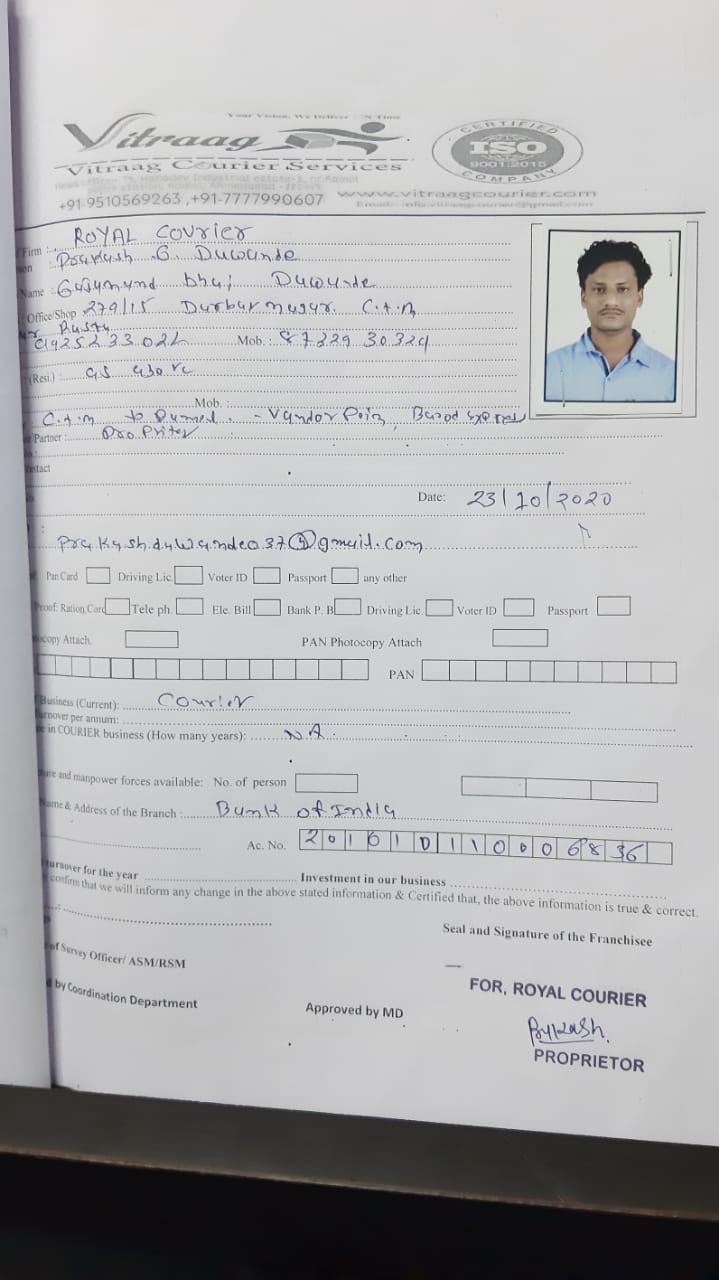 Your Vision, We Deliver ON Time
Vitraag
Vitraag Courier Services
CERTIFIED
ISO
9001:2015
COMPANY
+91-9510569263 ,+91-7777990607
www.vitraagcourier.com
Email: info.vitraagcourier@gmail.com
Firm : ROYAL COUrier
son : Prakash G. Dawande
Name : bhai Dawande
Office/Shop 279/15 Durbar nagar. C.t.m
Mob. : 87329 30324
(Resi.) : as above
Mob. :
C.t.m to
Partner : ProPriter
ntact
Date: 23/10/2020
prakash.dawande037@gmail.com
Pan Card Driving Lic. Voter ID Passport any other
Proof: Ration Card Tele ph. Ele. Bill Bank P. B Driving Lic Voter ID Passport
tocopy Attach. PAN Photocopy Attach
PAN
Business (Current): Courier
urnover per annum:
e in COURIER business (How many years): N.A.
ure and manpower forces available: No. of person
Name & Address of the Branch : Bank of India
Ac. No. 201610110006836
turnover for the year Investment in our business
confirm that we will inform any change in the above stated information & Certified that, the above information is true & correct.
Seal and Signature of the Franchisee
of Survey Officer/ ASM/RSM
FOR, ROYAL COURIER
d by Coordination Department
Approved by MD
PROPRIETOR